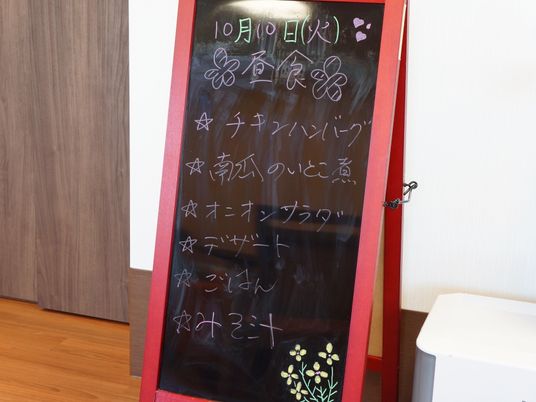 10月10日(火)
昼食
☆チキンハンバーグ
☆南瓜のいとこ煮
☆オニオンサラダ
☆デザート
☆ごはん
☆みそ汁